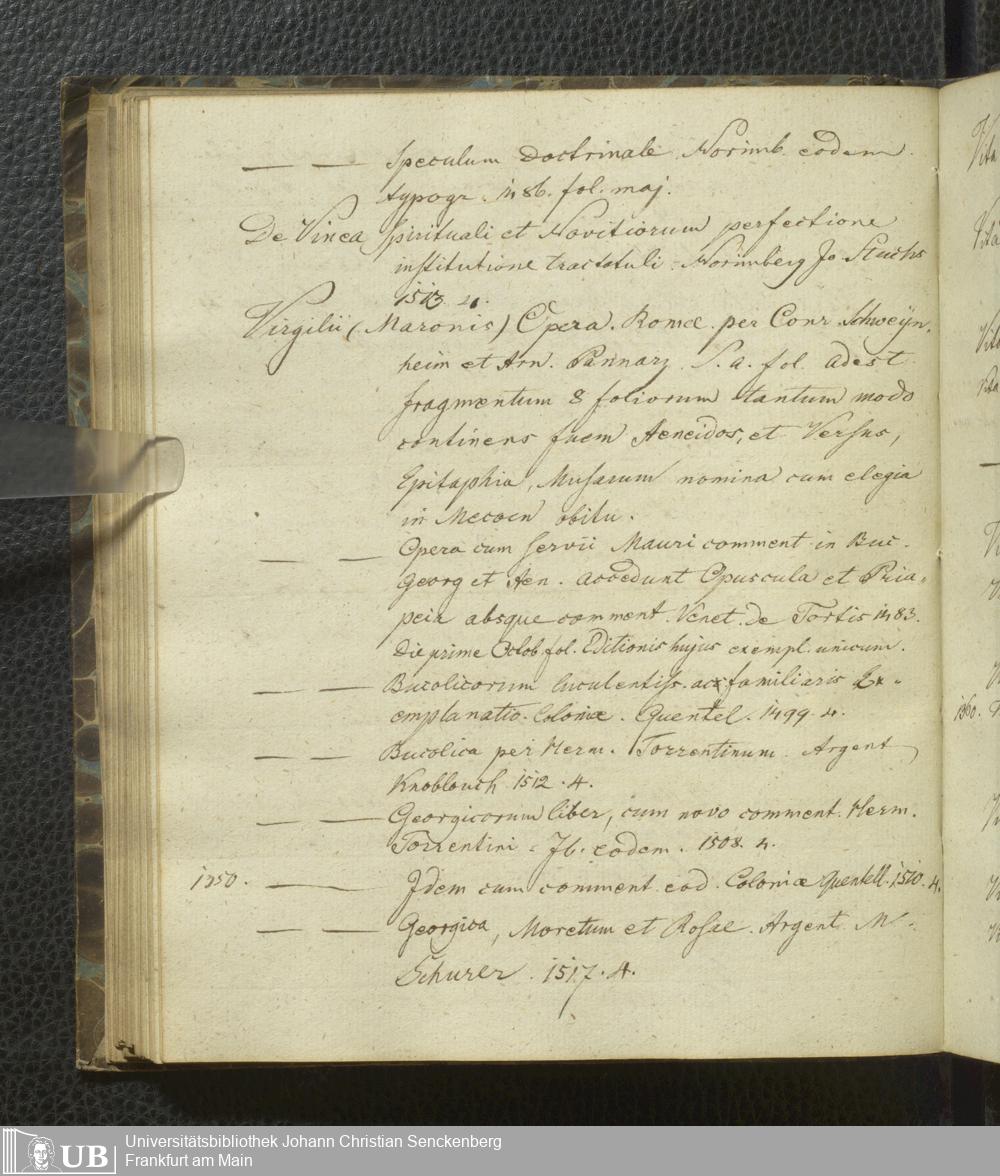 — — Speculum doctrinale Norimb. eodem
typogr. 1486. fol. maj.
De Vinea spirituali et Novitiorum perfectione
institutione tractatuli. Norimberg Jo Stuchs
1513. 4.
Virgilii (Maronis) Opera. Romæ. per Conr. Schweÿn-
heim et Arn. Pannarz. S. a. fol. adest
fragmentum 8 foliorum tantum modo
continens finem Aeneidos, et Versus,
Epitaphia, Musarum nomina cum elegia
in Mecoen obitu.
— — Opera cum Servii Mauri comment. in Buc.
Georg et Aen. accedunt Opuscula et Pria-
peia absque comment. Venet. de Tortis 1483.
die prime Octob fol. Editionis hujus exempl. unicum.
— — Bucolicorum luculentiss. ac familiaris Ex-
emplanatio. Coloniæ. Quentel. 1499. 4.
— — Bucolica per Herm. Torrentinum. Argent
Knoblouch 1512. 4.
— — Georgicorum liber, cum novo comment. Herm.
Torrentini. Ib. eodem. 1508. 4.
1350. — — Idem cum comment. eod. Coloniæ Quentell. 1510. 4.
— — Georgica, Moretum et Rosae. Argent. M.
Schurer. 1517. 4.
Vita
1360.
UB
Universitätsbibliothek Johann Christian Senckenberg
Frankfurt am Main